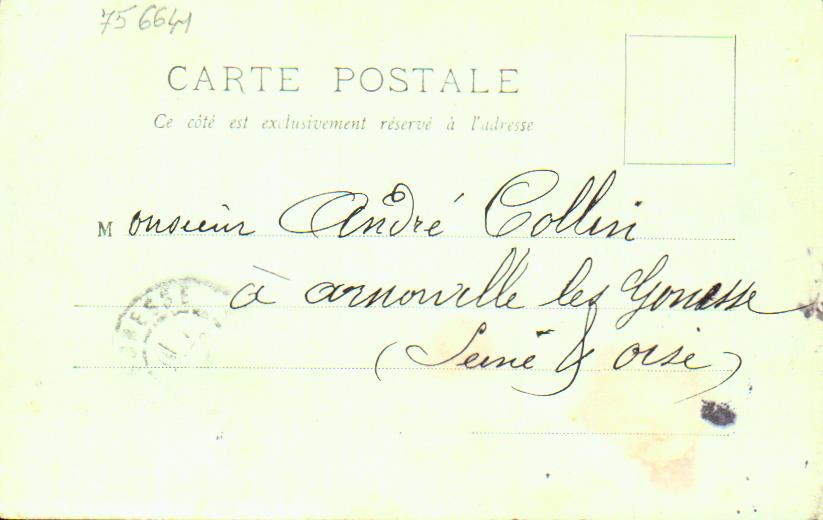 75 6641
CARTE POSTALE
Ce côté est exclusivement réservé à l'adresse
Monsieur André Collin
à arnouville les Gonesse
(Seine & oise)